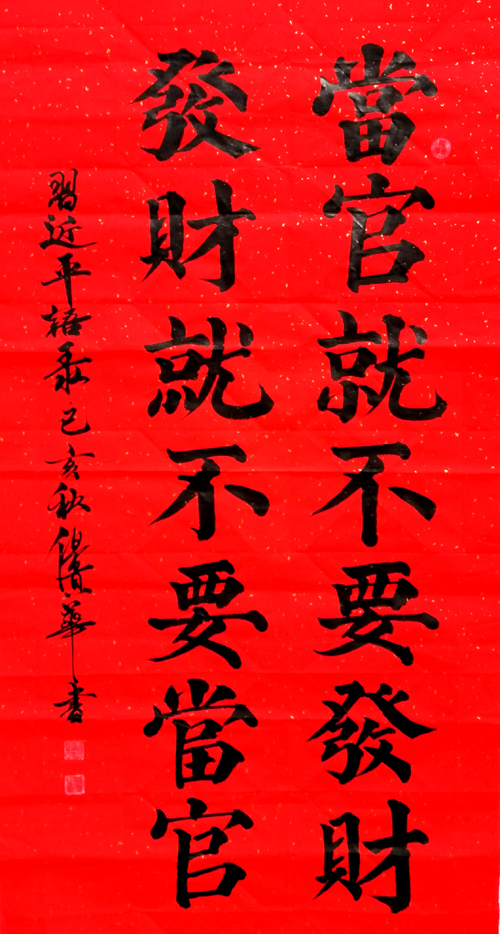 當官就不要發財
發財就不要當官
習近平語录己亥秋倪清華書